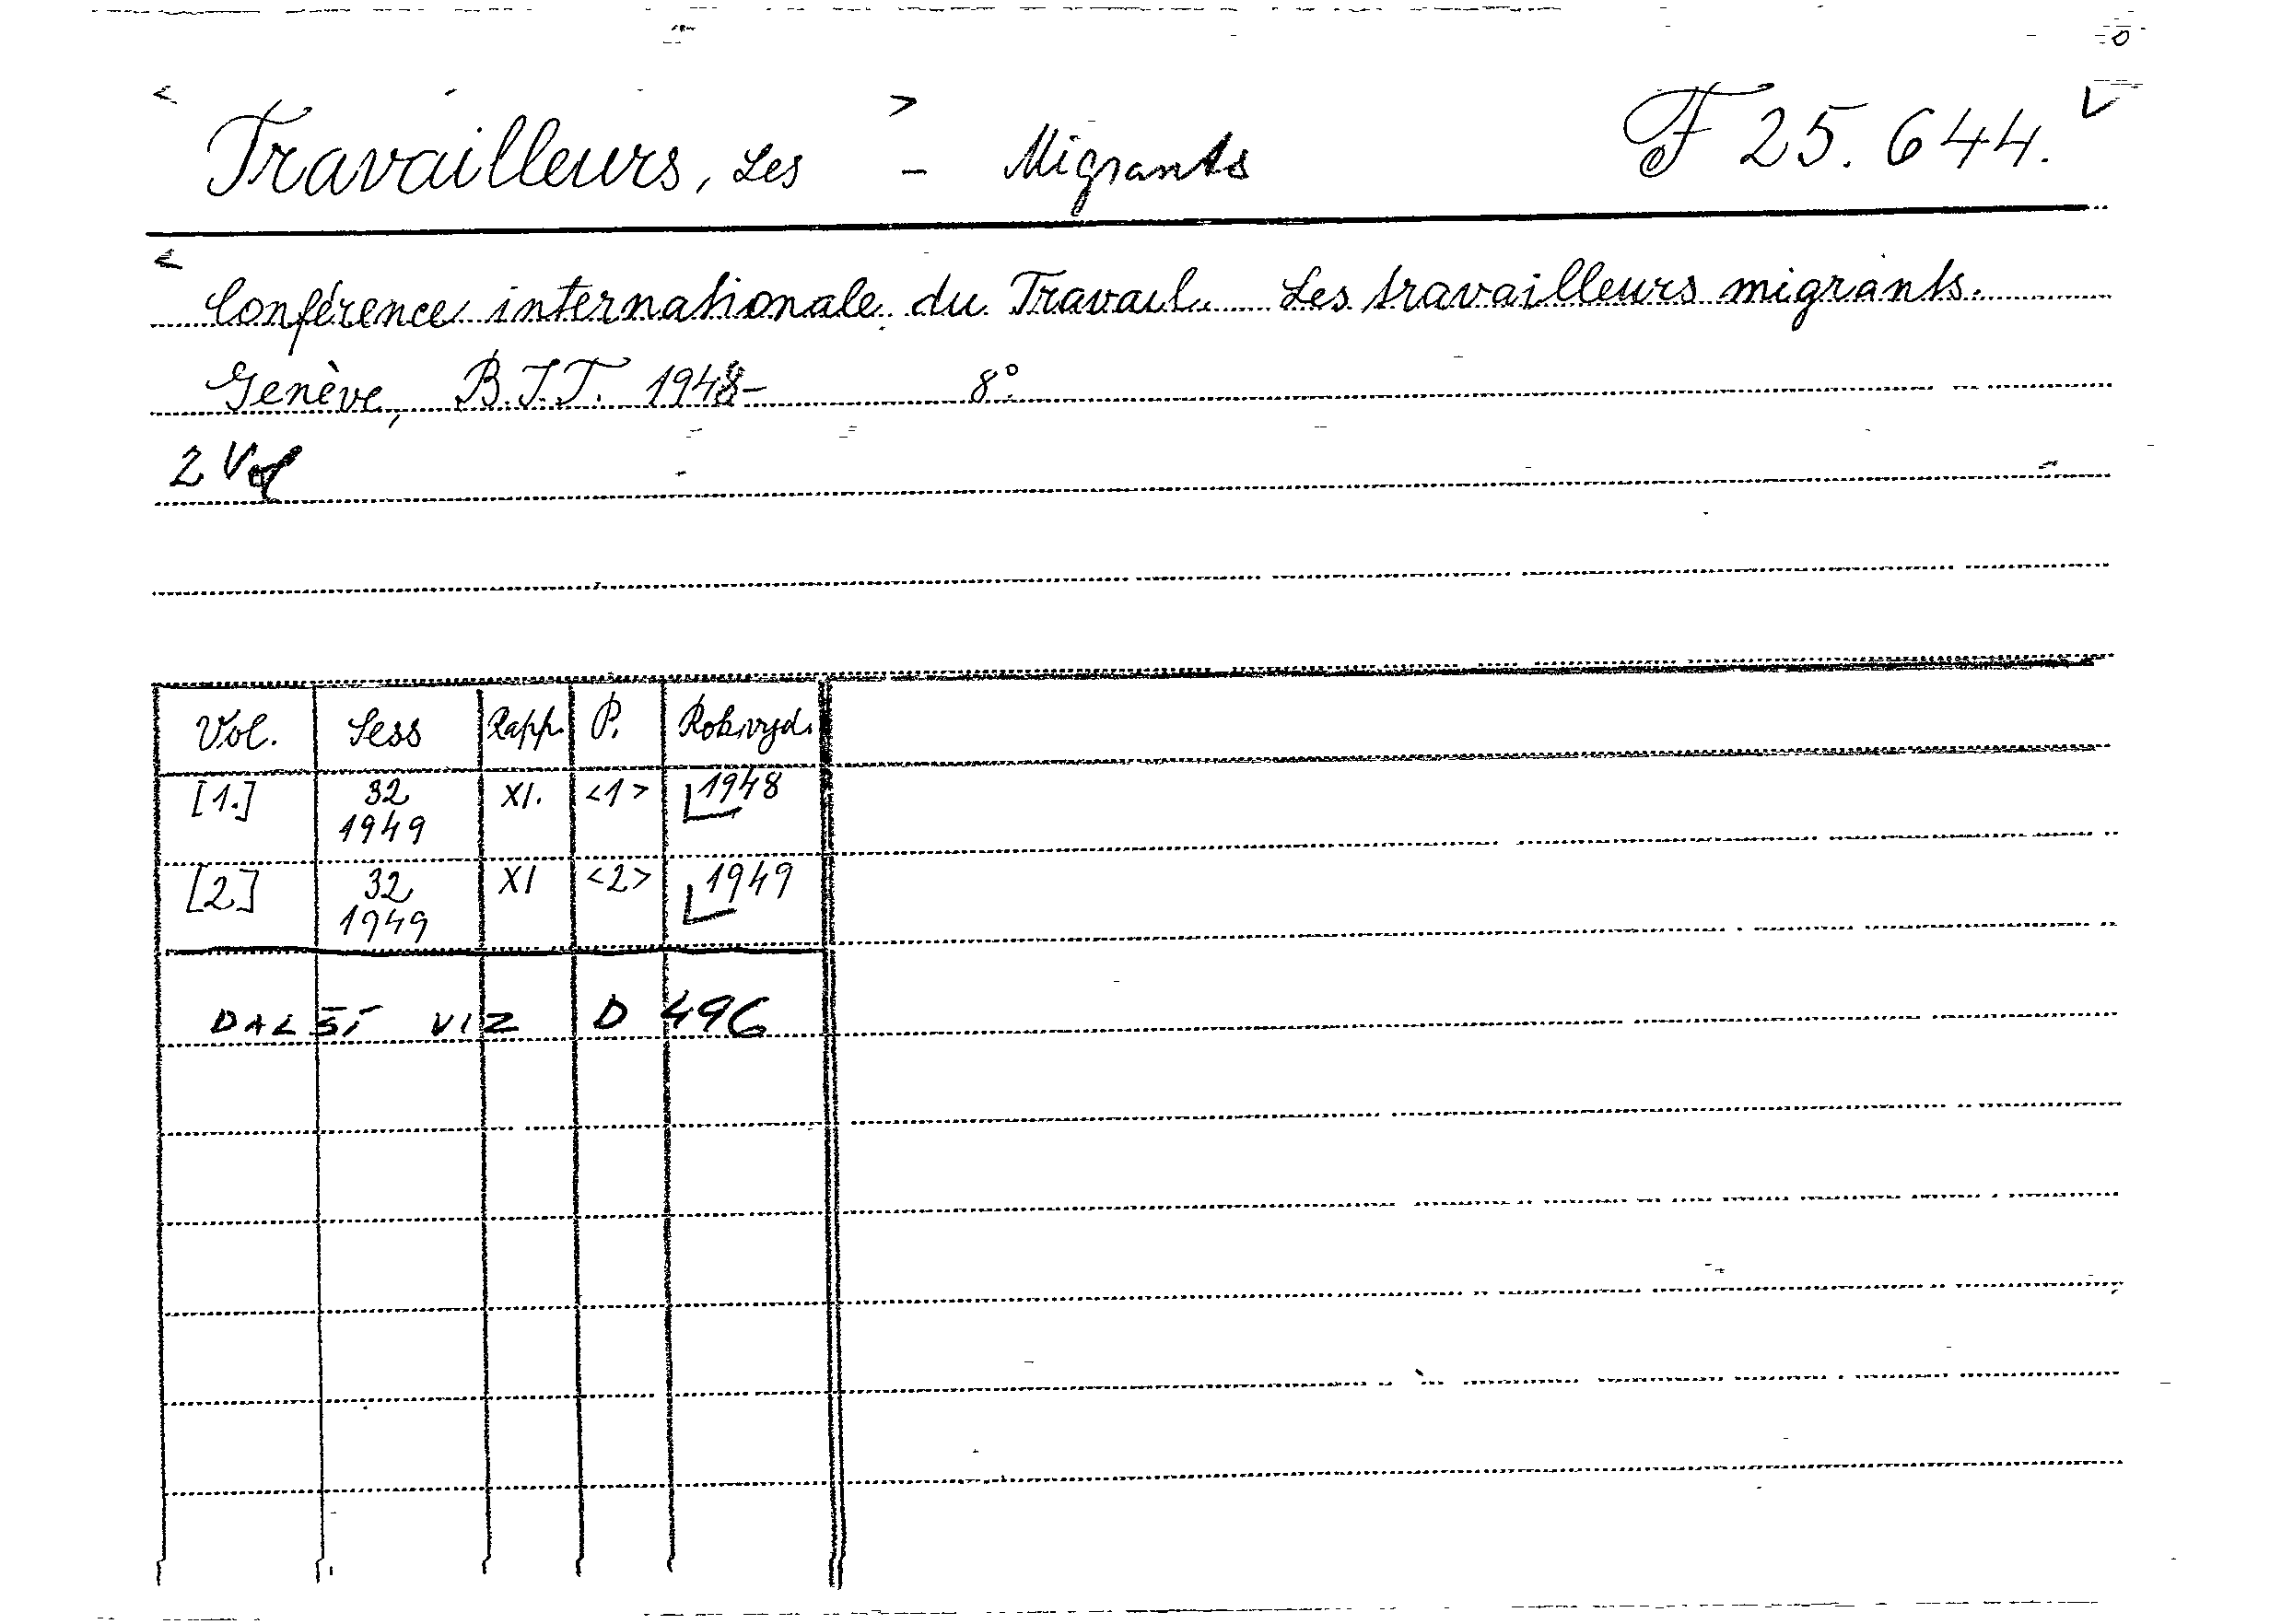 < Travailleurs, Les > - Migrants F 25.644. V
< Conférence internationale du Travail. Les travailleurs migrants.
Genève, B.I.T. 1948- 8°.
2 Vol
Vol. Sess Rapp. P. Rok vyd.
[1.] 32 1949 XI. <1> 1948
[2] 32 1949 XI <2> 1949
DALŠÍ VIZ D 496